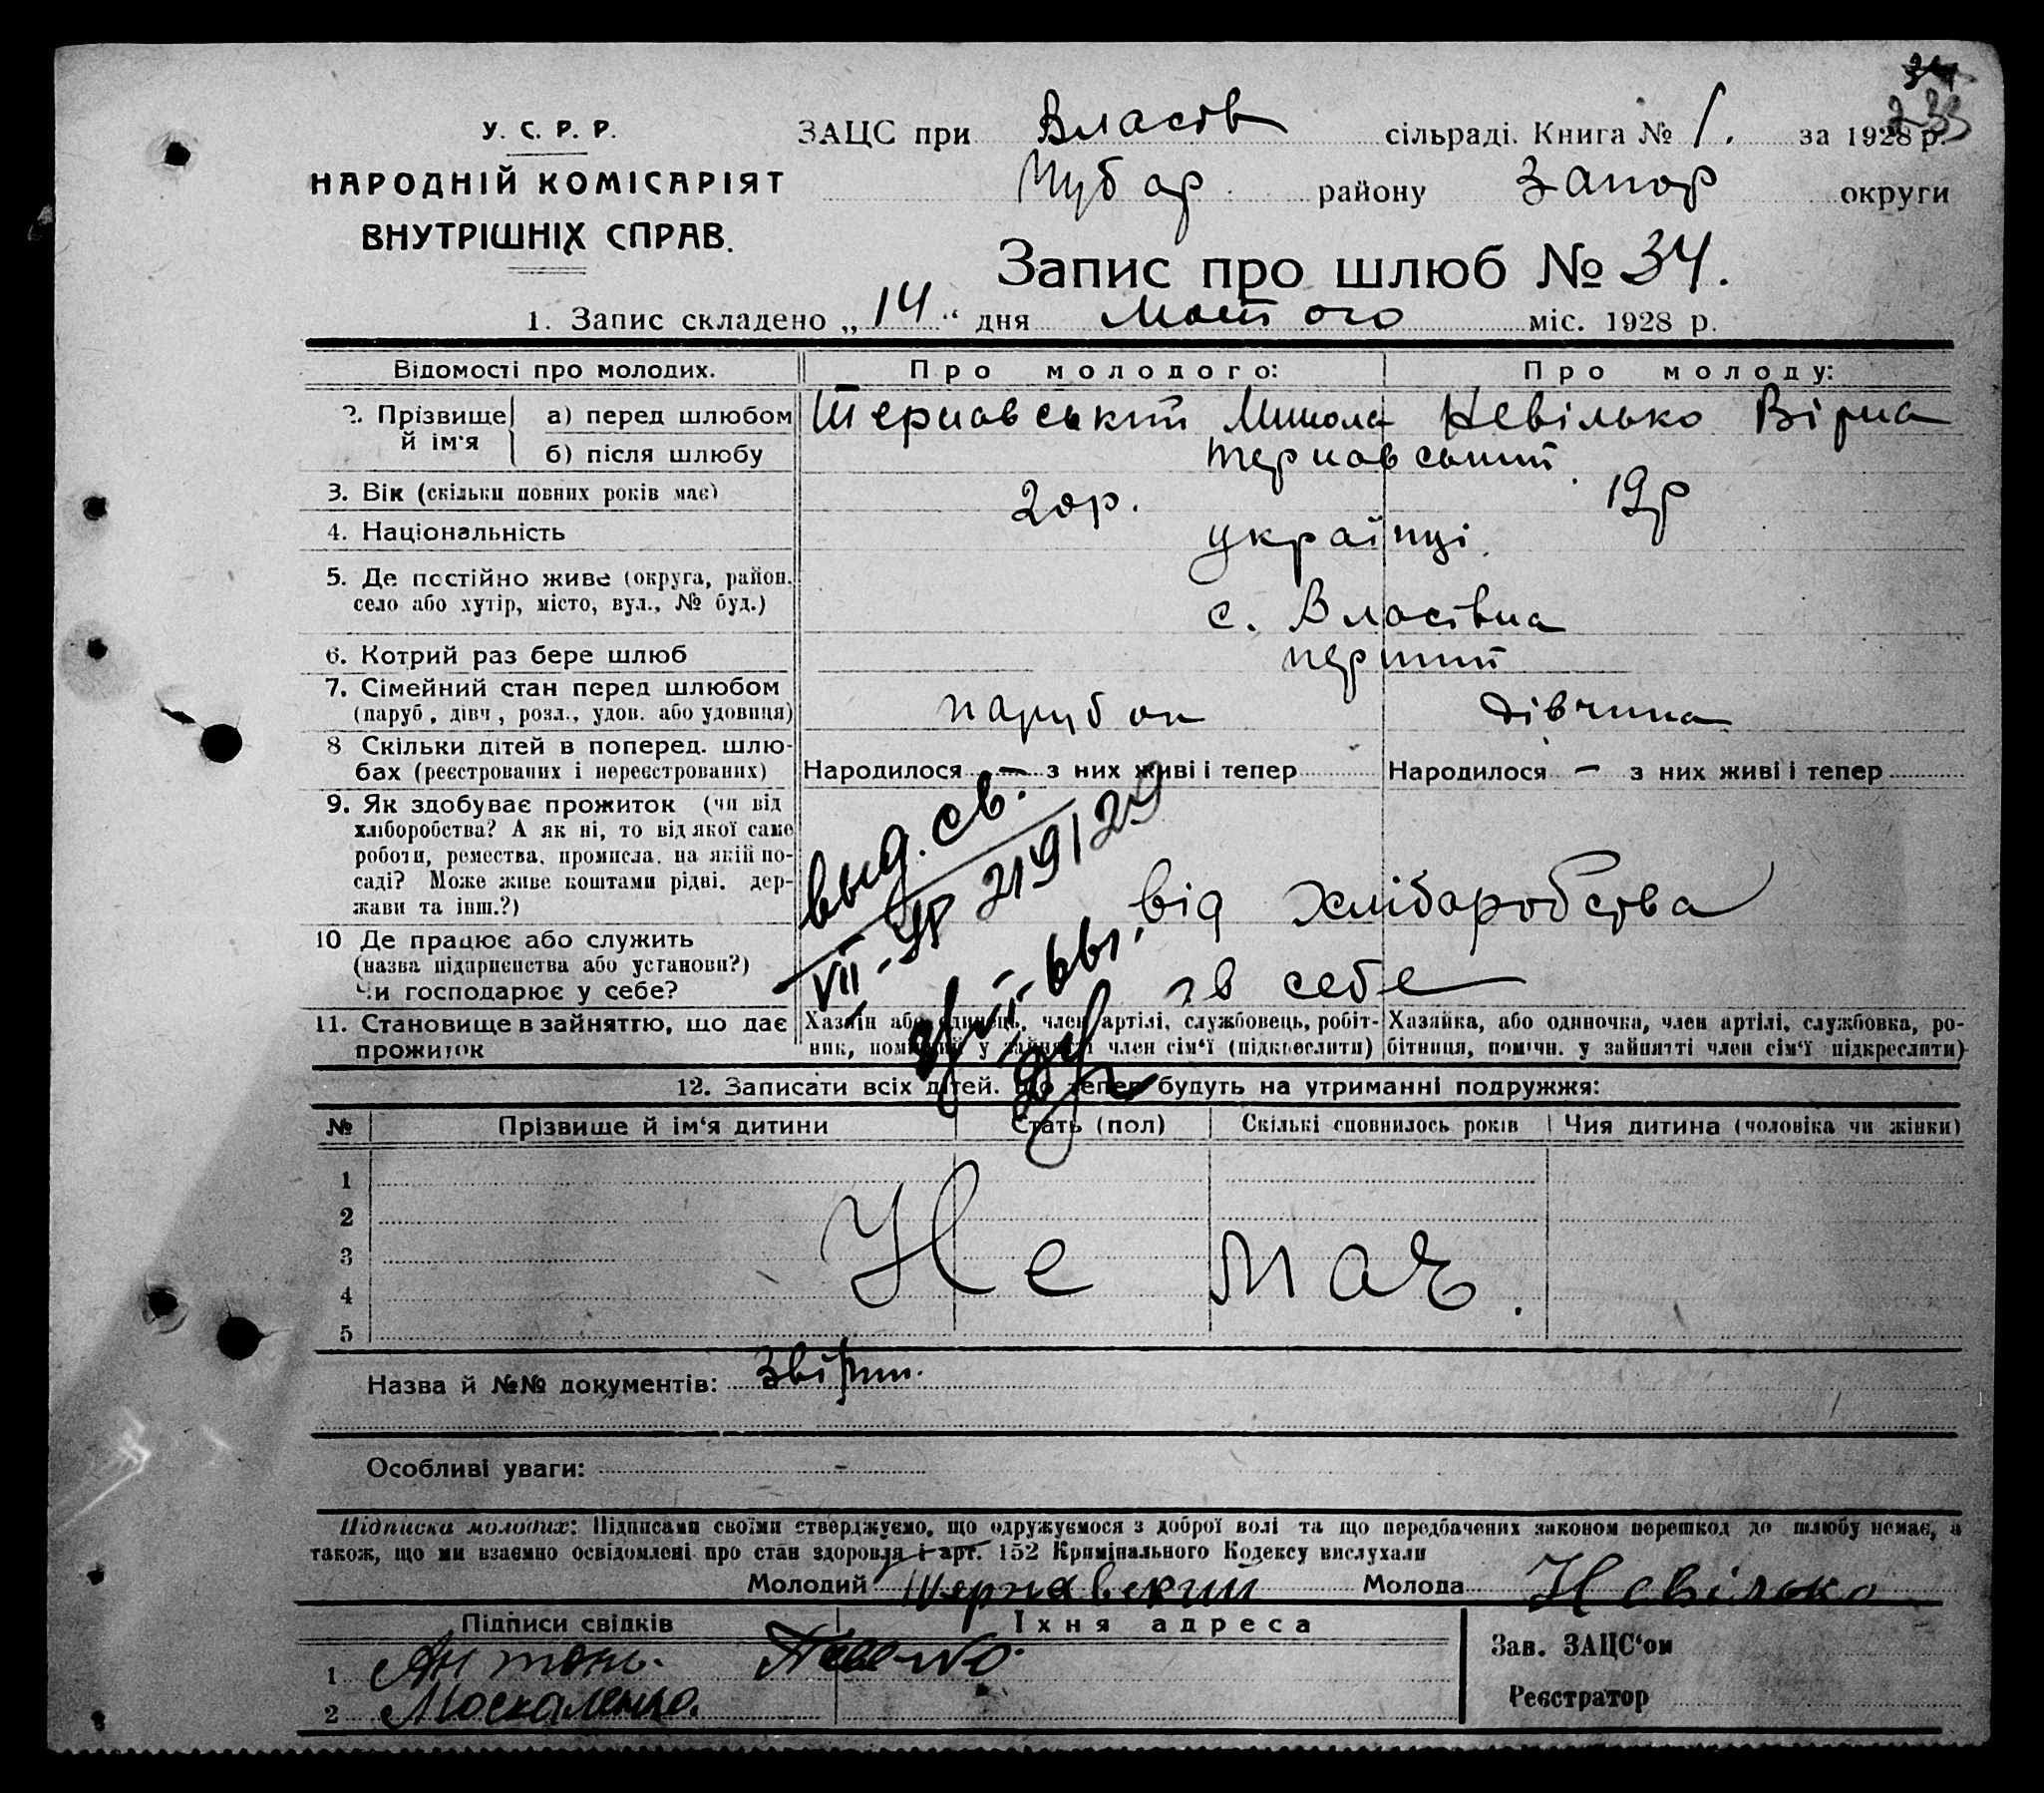 34
233
У. С. Р. Р.
НАРОДНІЙ КОМІСАРІЯТ
ВНУТРІШНІХ СПРАВ.
ЗАЦС при Власов сільраді. Книга № 1. за 1928 р.
Чубар району Запор округи
Запис про шлюб № 34.
1. Запис складено „14“ дня Лютого міс. 1928 р.
Відомості про молодих. Про молодого: Про молоду:
2. Прізвище й ім‘я а) перед шлюбом Терновський Микола Невілько Вірна
б) після шлюбу Терновський
3. Вік (скільки повних років має) 20р. 19р
4. Національність українці.
5. Де постійно живе (округа, район,
село або хутір, місто, вул., № буд.) с. Власівка
6. Котрий раз бере шлюб перший
7. Сімейний стан перед шлюбом
(паруб, дівч, розл., удов. або удовиця) парубок дівчина
8 Скільки дітей в поперед. шлю-
бах (реєстрованих і нереєстрованих) Народилося — з них живі і тепер Народилося — з них живі і тепер
9. Як здобуває прожиток (чи від
хліборобства? А як ні, то від якої саме
роботи, ремества, промисла, на якій по-
саді? Може живе коштами рідні, дер-
жави та інш.?) від хліборобства
выд. св.
VII-ЯР 219129
10 Де працює або служить
(назва підприємства або установи?)
Чи господарює у себе? в себе
11. Становище в зайняттю, що дає
прожиток
Хазяїн або одинець, член артілі, службовець, робіт-
ник, помічний у зайнятті член сім‘ї (підкреслити)
Хазяйка, або одиночка, член артілі, службовка, ро-
бітниця, помічн. у зайнятті член сім‘ї підкреслити)
12. Записати всіх дітей. що тепер будуть на утриманні подружжя:
№ Прізвище й ім‘я дитини Стать (пол) Скількі сповнилось років Чия дитина (чоловіка чи жінки)
1
2
3
4
5
Не має.
Назва й №№ документів: Звірши.
Особливі уваги: -
Підписка молодих: Підписами своїми стверджуємо, що одружуємося з доброї волі та що передбачених законом перешкод до шлюбу немає, а
також, що ми взаємно освідомлені про стан здоровля і арт. 152 Кримінального Кодексу вислухали
Молодий Терновский Молода Невілько
Підписи свідків Їхня адреса
1 Антонь.
2 Москаленко.
Зав. ЗАЦС‘ом
Реєстратор